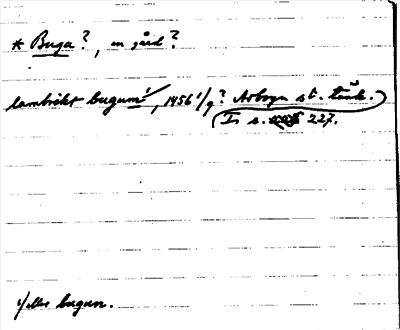 * Buga?, en gård?
lambrikt bugum¹⁾, 1456 1/9? Arboga st. tänk.
I s. 227.
¹⁾ eller bugun.